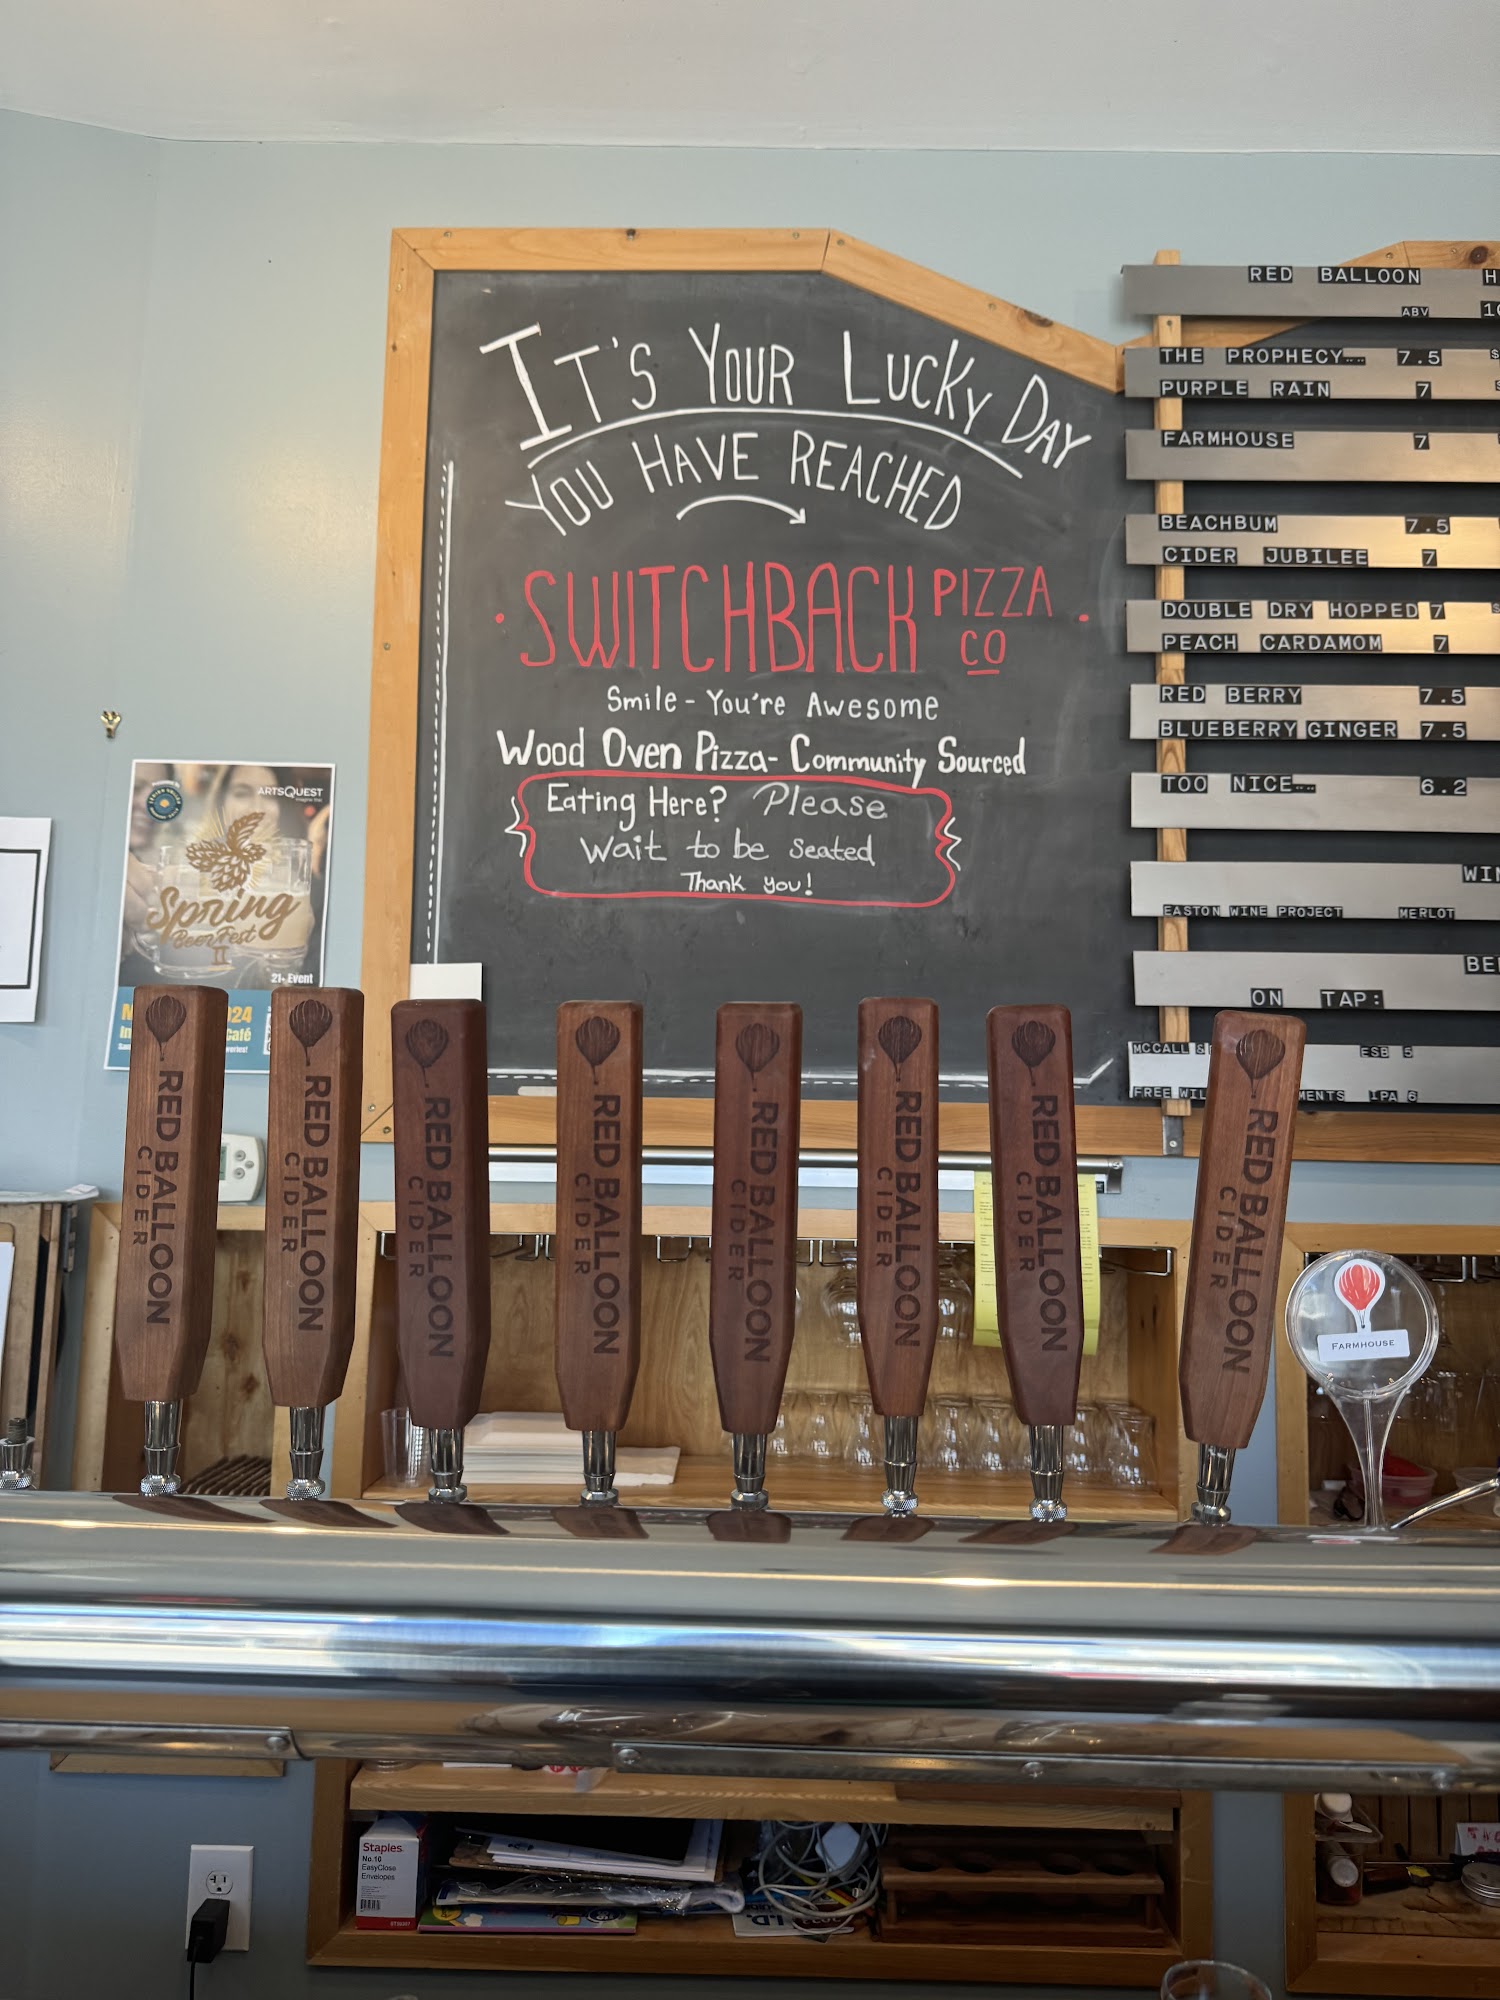 IT'S YOUR LUCKY DAY
YOU HAVE REACHED
SWITCHBACK PIZZA
CO
Smile - You're Awesome
Wood Oven Pizza- Community Sourced
Eating Here? Please
Wait to be seated
Thank you!
RED BALLOON
ABV
THE PROPHECY 7.5
PURPLE RAIN 7
FARMHOUSE 7
BEACHBUM 7.5
CIDER JUBILEE 7
DOUBLE DRY HOPPED 7
PEACH CARDAMOM 7
RED BERRY 7.5
BLUEBERRY GINGER 7.5
TOO NICE 6.2
EASTON WINE PROJECT MERLOT
ON TAP:
MCCALL & ESB 5
FREE WIL MENTS IPA 6
ARTSQUEST
Spring
BeerFest
II
21+ Event
24
Café
RED BALLOON
CIDER
RED BALLOON
CIDER
RED BALLOON
CIDER
RED BALLOON
CIDER
RED BALLOON
CIDER
RED BALLOON
CIDER
RED BALLOON
CIDER
RED BALLOON
CIDER
FARMHOUSE
Staples
No.10
EasyClose
Envelopes